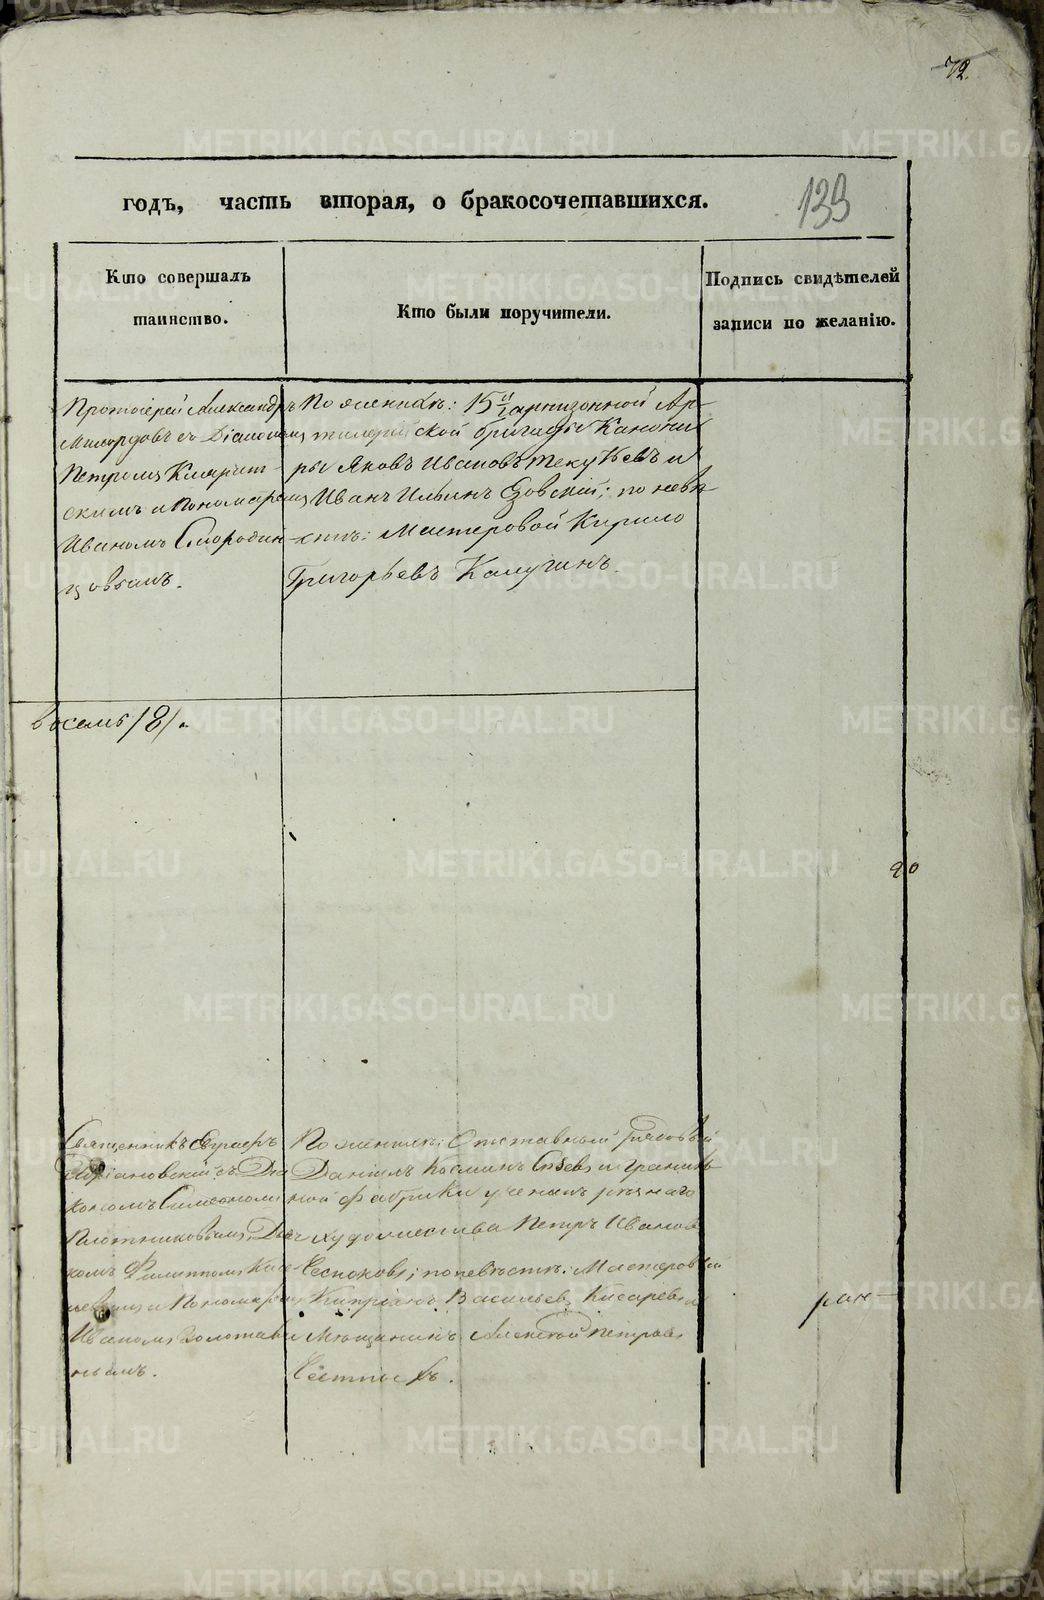 72.
139
годъ, часть вторая, о бракосочетавшихся.
Кто совершалъ
таинство.
Кто были поручители.
Подпись свидѣтелей
записи по желанію.
Протоіерей Александръ
Милордовъ съ Діакономъ
Петромъ
скимъ и Пономаремъ
Иваномъ Смородин-
цовымъ.
По женихѣ: 15й гарнизонной Ар-
тилерійской бригады Канони-
ры Яковъ Ивановъ Текутьевъ и
Иванъ Ильинъ по невѣ-
стѣ: Мастеровой Кирило
Григорьевъ Калугинъ.
восемь /8/.
20
Священникъ
съ Діа
кономъ Симеономъ
Плотниковымъ, Дьяч
комъ Филиппомъ
и Пономаремъ
Иваномъ Золотави
нымъ.
По женихѣ: Отставный Рядовый
Даніилъ Косминъ и Граниль
ной фабрики ученикъ рѣзнаго
художества Петръ Иванов
по невѣстѣ: Мастеровый
Кипріанъ Васильевъ Кисаревъ и
Мѣщанинъ Алексѣй Петровъ
METRIKI.GASO-URAL.RU